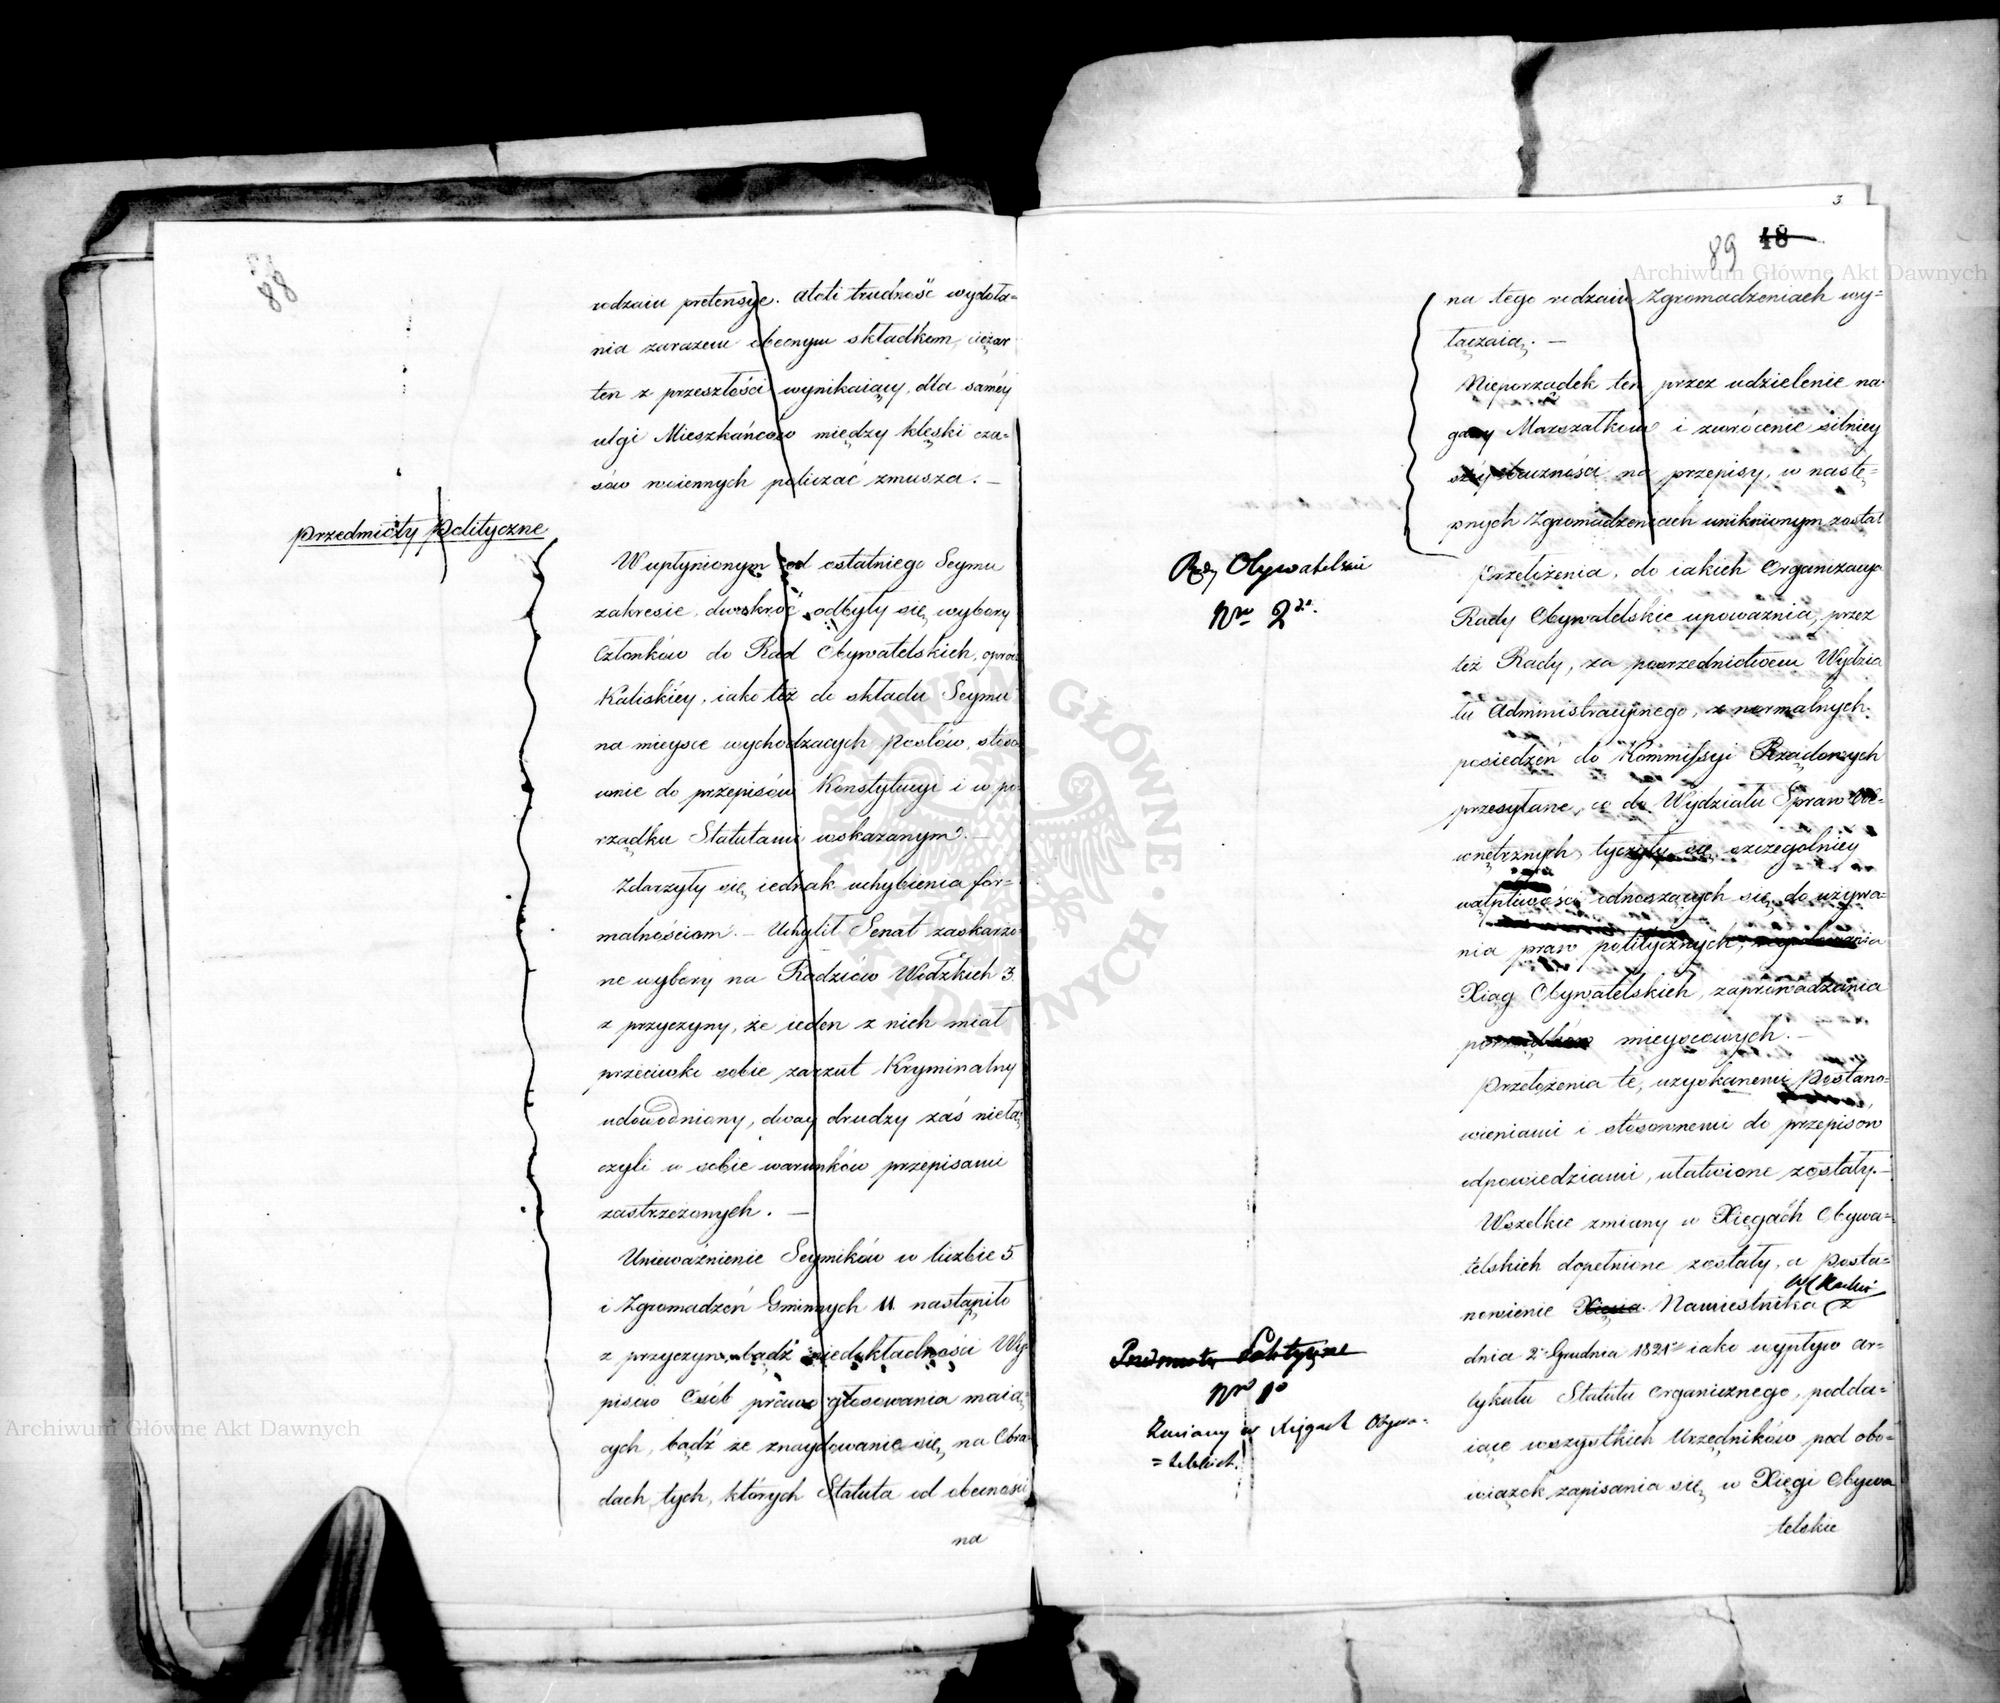 88
rodzaiu pretensye. Atoli trudność wydoła=
nia zarazem obecnym składkom, ciężar
ten z przeszłości wynikaiący, dla saméy
ulgi Mieszkańców między klęski cza=
sów woiennych policzać zmusza. —
Przedmioty Polityczne
W upłynionym od ostatniego Seymu
zakresie, dwoskroć odbyły się wybory
Członków do Rad Obywatelskich, oprócz
Kaliskiéy, iako też do składu Seymu
na mieysce wychodzących Posłów, stoso
wnie do przepisów Konstytucyi i w po
rządku Statutami wskazanym. —
Zdarzyły się iednak uchybienia for=
malnościom. — Uchylił Senat zaskarżo
ne wybory na Radzców Wodzkich 3
z przyczyny, że ieden z nich miał
przeciwko sobie zarzut Kryminalny
udowodniony, dway drudzy zaś nie łą
czyli w sobie warunków przepisami
zastrzeżonych. —
Unieważnienie Seymików w liczbie 5
i Zgromadzeń Gminnych 11 nastąpiło
z przyczyn, bądź niedokładności Wy
pisów Osób prawo głosowania maią=
cych, bądź że znaydowanie się na Obra=
dach tych, których Statuta od obecności
na
3
89 48
na tego rodzaiu Zgromadzeniach wy=
łączaią. —
Nieporządek ten przez udzielenie na
gany Marszałkom i zwrócenie silniey
széy baczności na przepisy, w nastę=
pnych Zgromadzeniach uniknionym został
Rady Obywatelskie
Nro 2do.
Przełożenia, do iakich Organizacya
Rady Obywatelskie upoważnia, przez
też Rady, za pośrednictwem Wydzia
łu Administracyinego, z normalnych
posiedzeń do Kommissyi Rządowych
przesyłane, co do Wydziału Spraw We=
wnętrznych tyczyły się szczególniey
wątpliwości odnoszących się do używa=
nia praw politycznych,
Xiąg Obywatelskich, zaprowadzenia
porządków mieyscowych. —
Przełożenia te, uzyskanemi Postano=
wieniami i stosownemi do przepisów
odpowiedziami, ułatwione zostały. —
Przedmioty Polityczne
Nro 1o
Zmiany w Xięgach Obywa=
=telskich.
Wszelkie zmiany w Xięgach Obywa=
telskich dopełnione zostały, a Posta=
nowienie Xięcia Namiestnika z
dnia 2 Grudnia 1821 iako wypływ ar=
tykułu Statutu Organicznego, podda=
iące wszystkich Urzędników pod obo=
wiązek zapisania się w Xięgi Obywa
telskie
Archiwum Główne Akt Dawnych
Archiwum Główne Akt Dawnych
ARCHIWUM GŁÓWNE AKT DAWNYCH